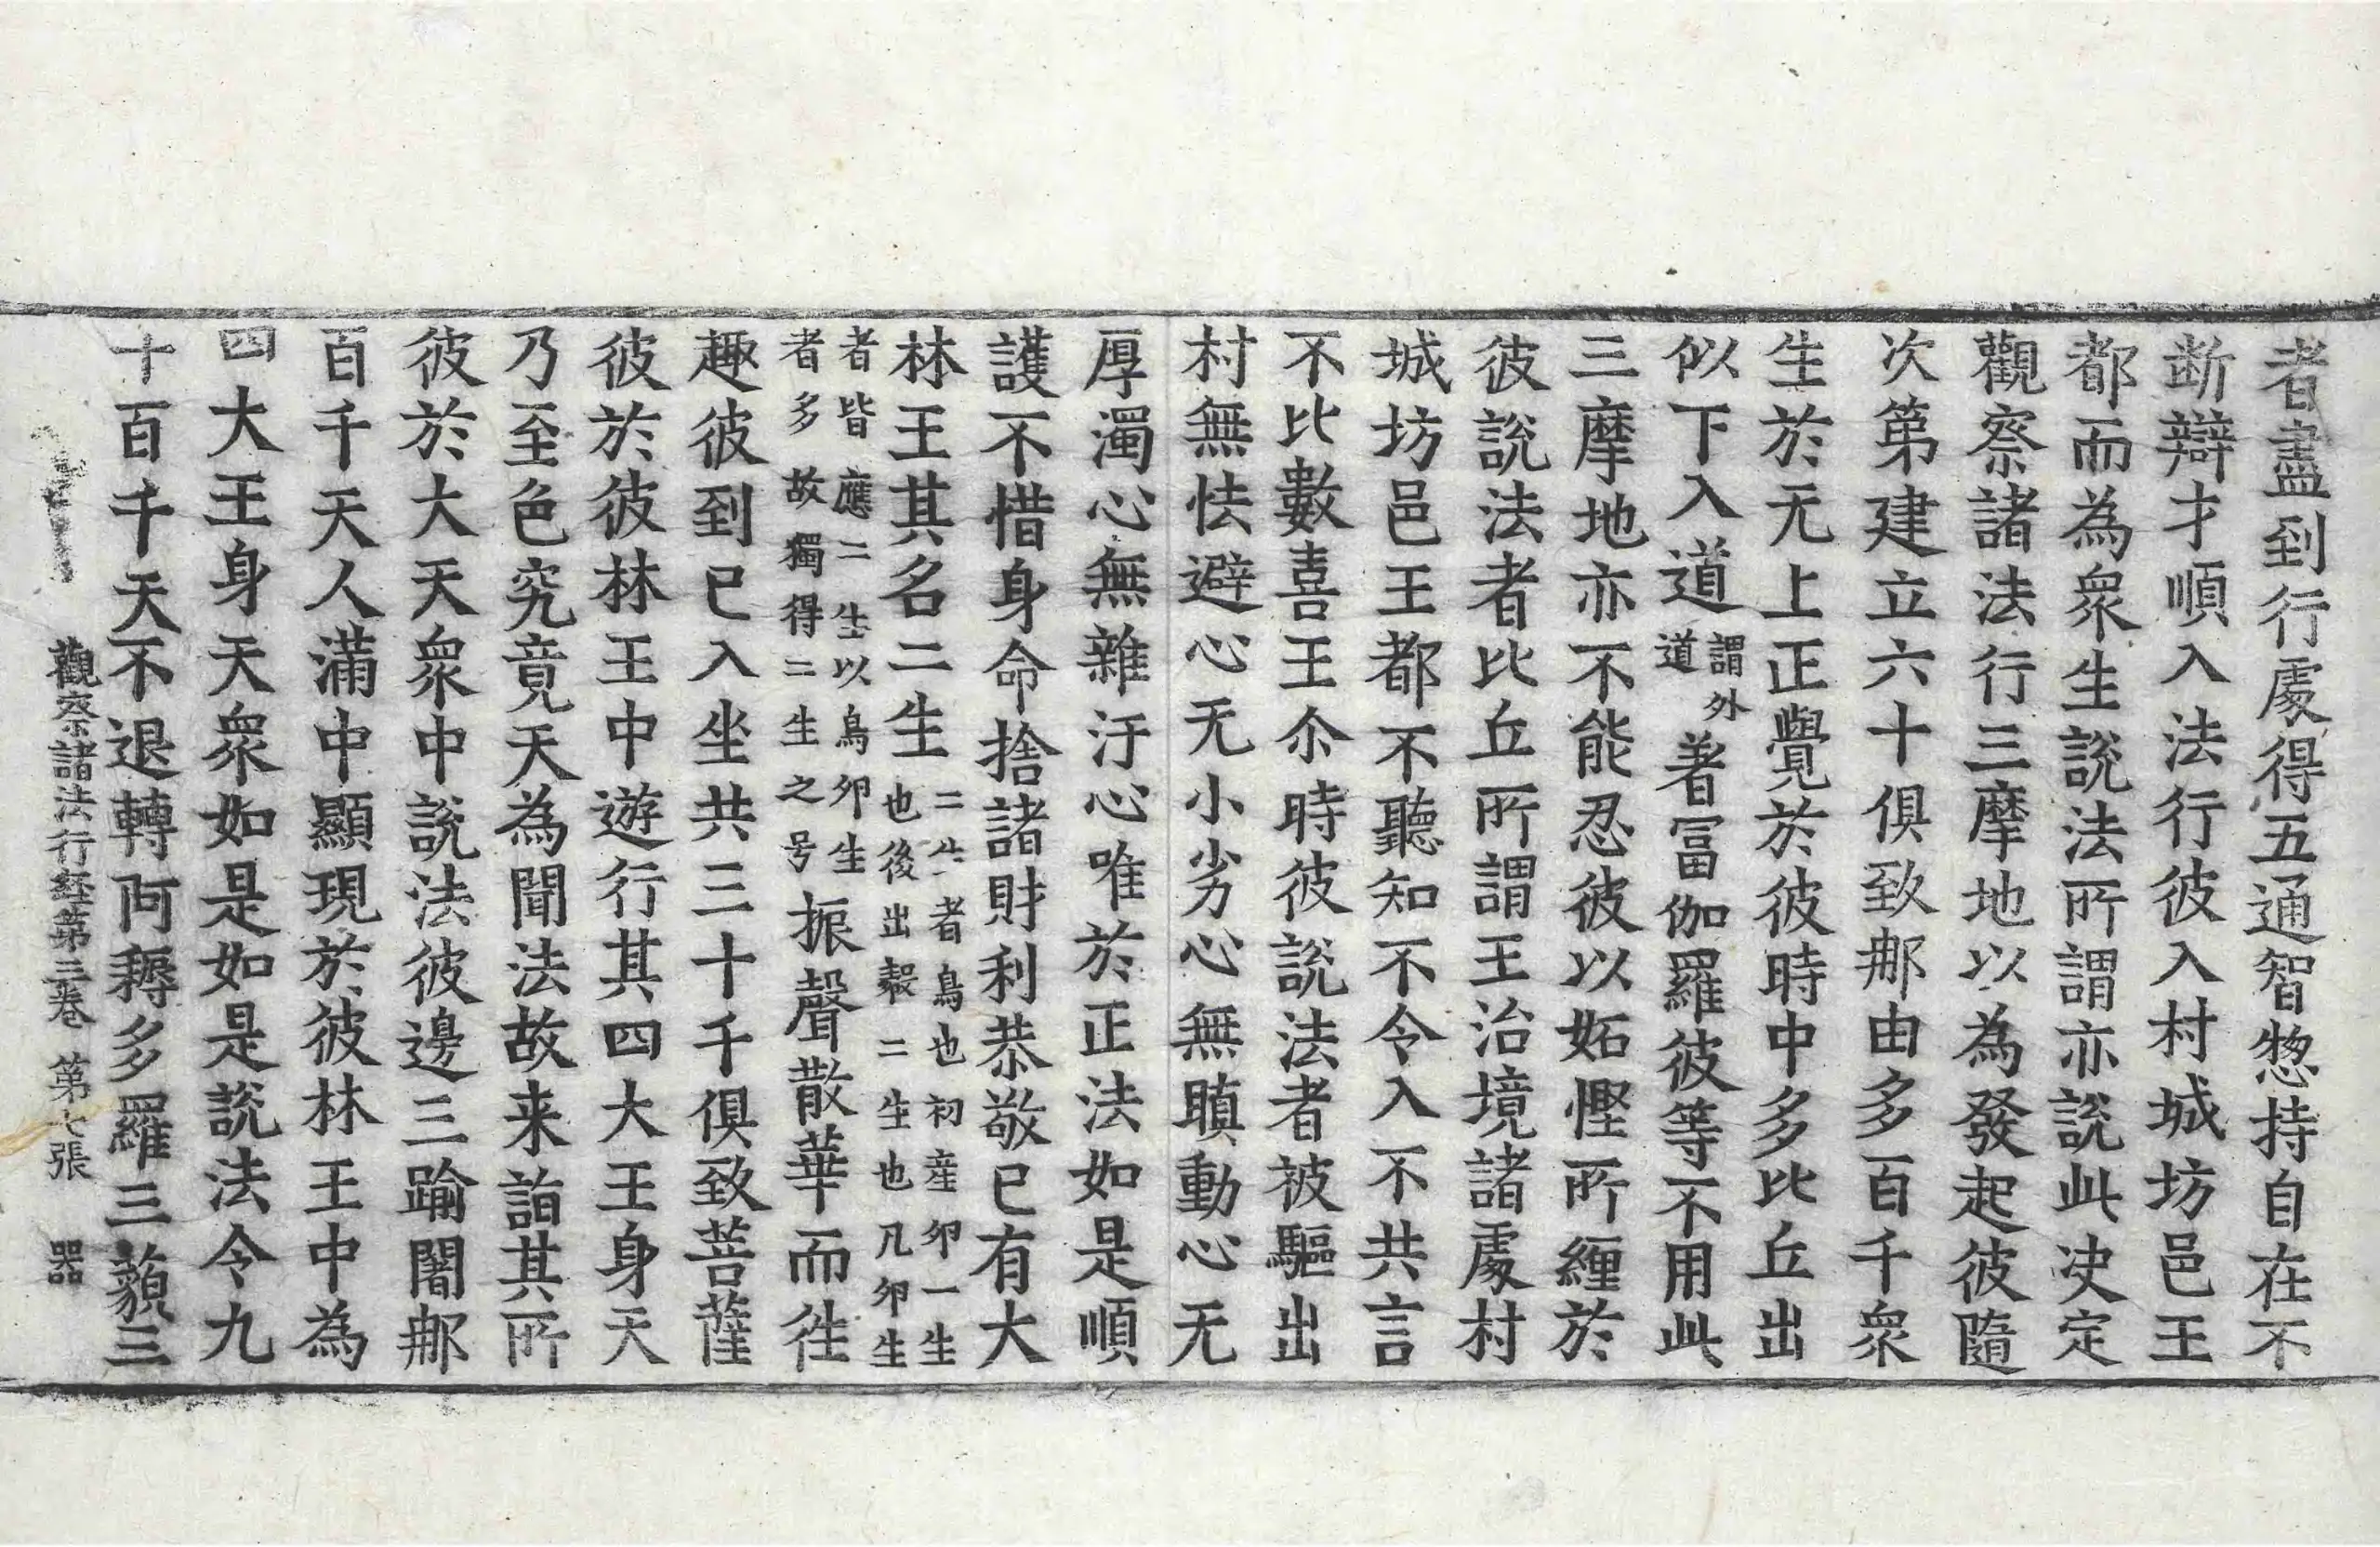 者盡到行處得五通智惣持自在不
断辯才順入法行彼入村城坊邑王
都而為衆生說法所謂亦說此決定
觀察諸法行三摩地以為發起彼隨
次第建立六十俱致那由多百千衆
生於无上正覺於彼時中多比丘出
似下入道謂外道著冨伽羅彼等不用此
三摩地亦不能忍彼以妬慳所纏於
彼說法者比丘所謂王治境諸處村
城坊邑王都不聽知不令入不共言
不比數喜王尒時彼說法者被驅出
村無怯避心无小劣心無瞋動心无
厚濁心無雜汙心唯於正法如是順
護不惜身命捨諸財利恭敬已有大
林王其名二生二生者鳥也初産卵一生也後出㲉二生也凡卵生
者皆應二生以鳥卵生者多故獨得二生之号振聲散華而徃
趣彼到已入坐共三十千俱致菩薩
彼於彼林王中遊行其四大王身天
乃至色究竟天為聞法故来詣其所
彼於大天衆中說法彼邊三踰闍那
百千天人滿中顯現於彼林王中為
四大王身天衆如是如是說法令九
十百千天不退轉阿耨多羅三藐三
觀察諸法行経第三巻 第七張 器